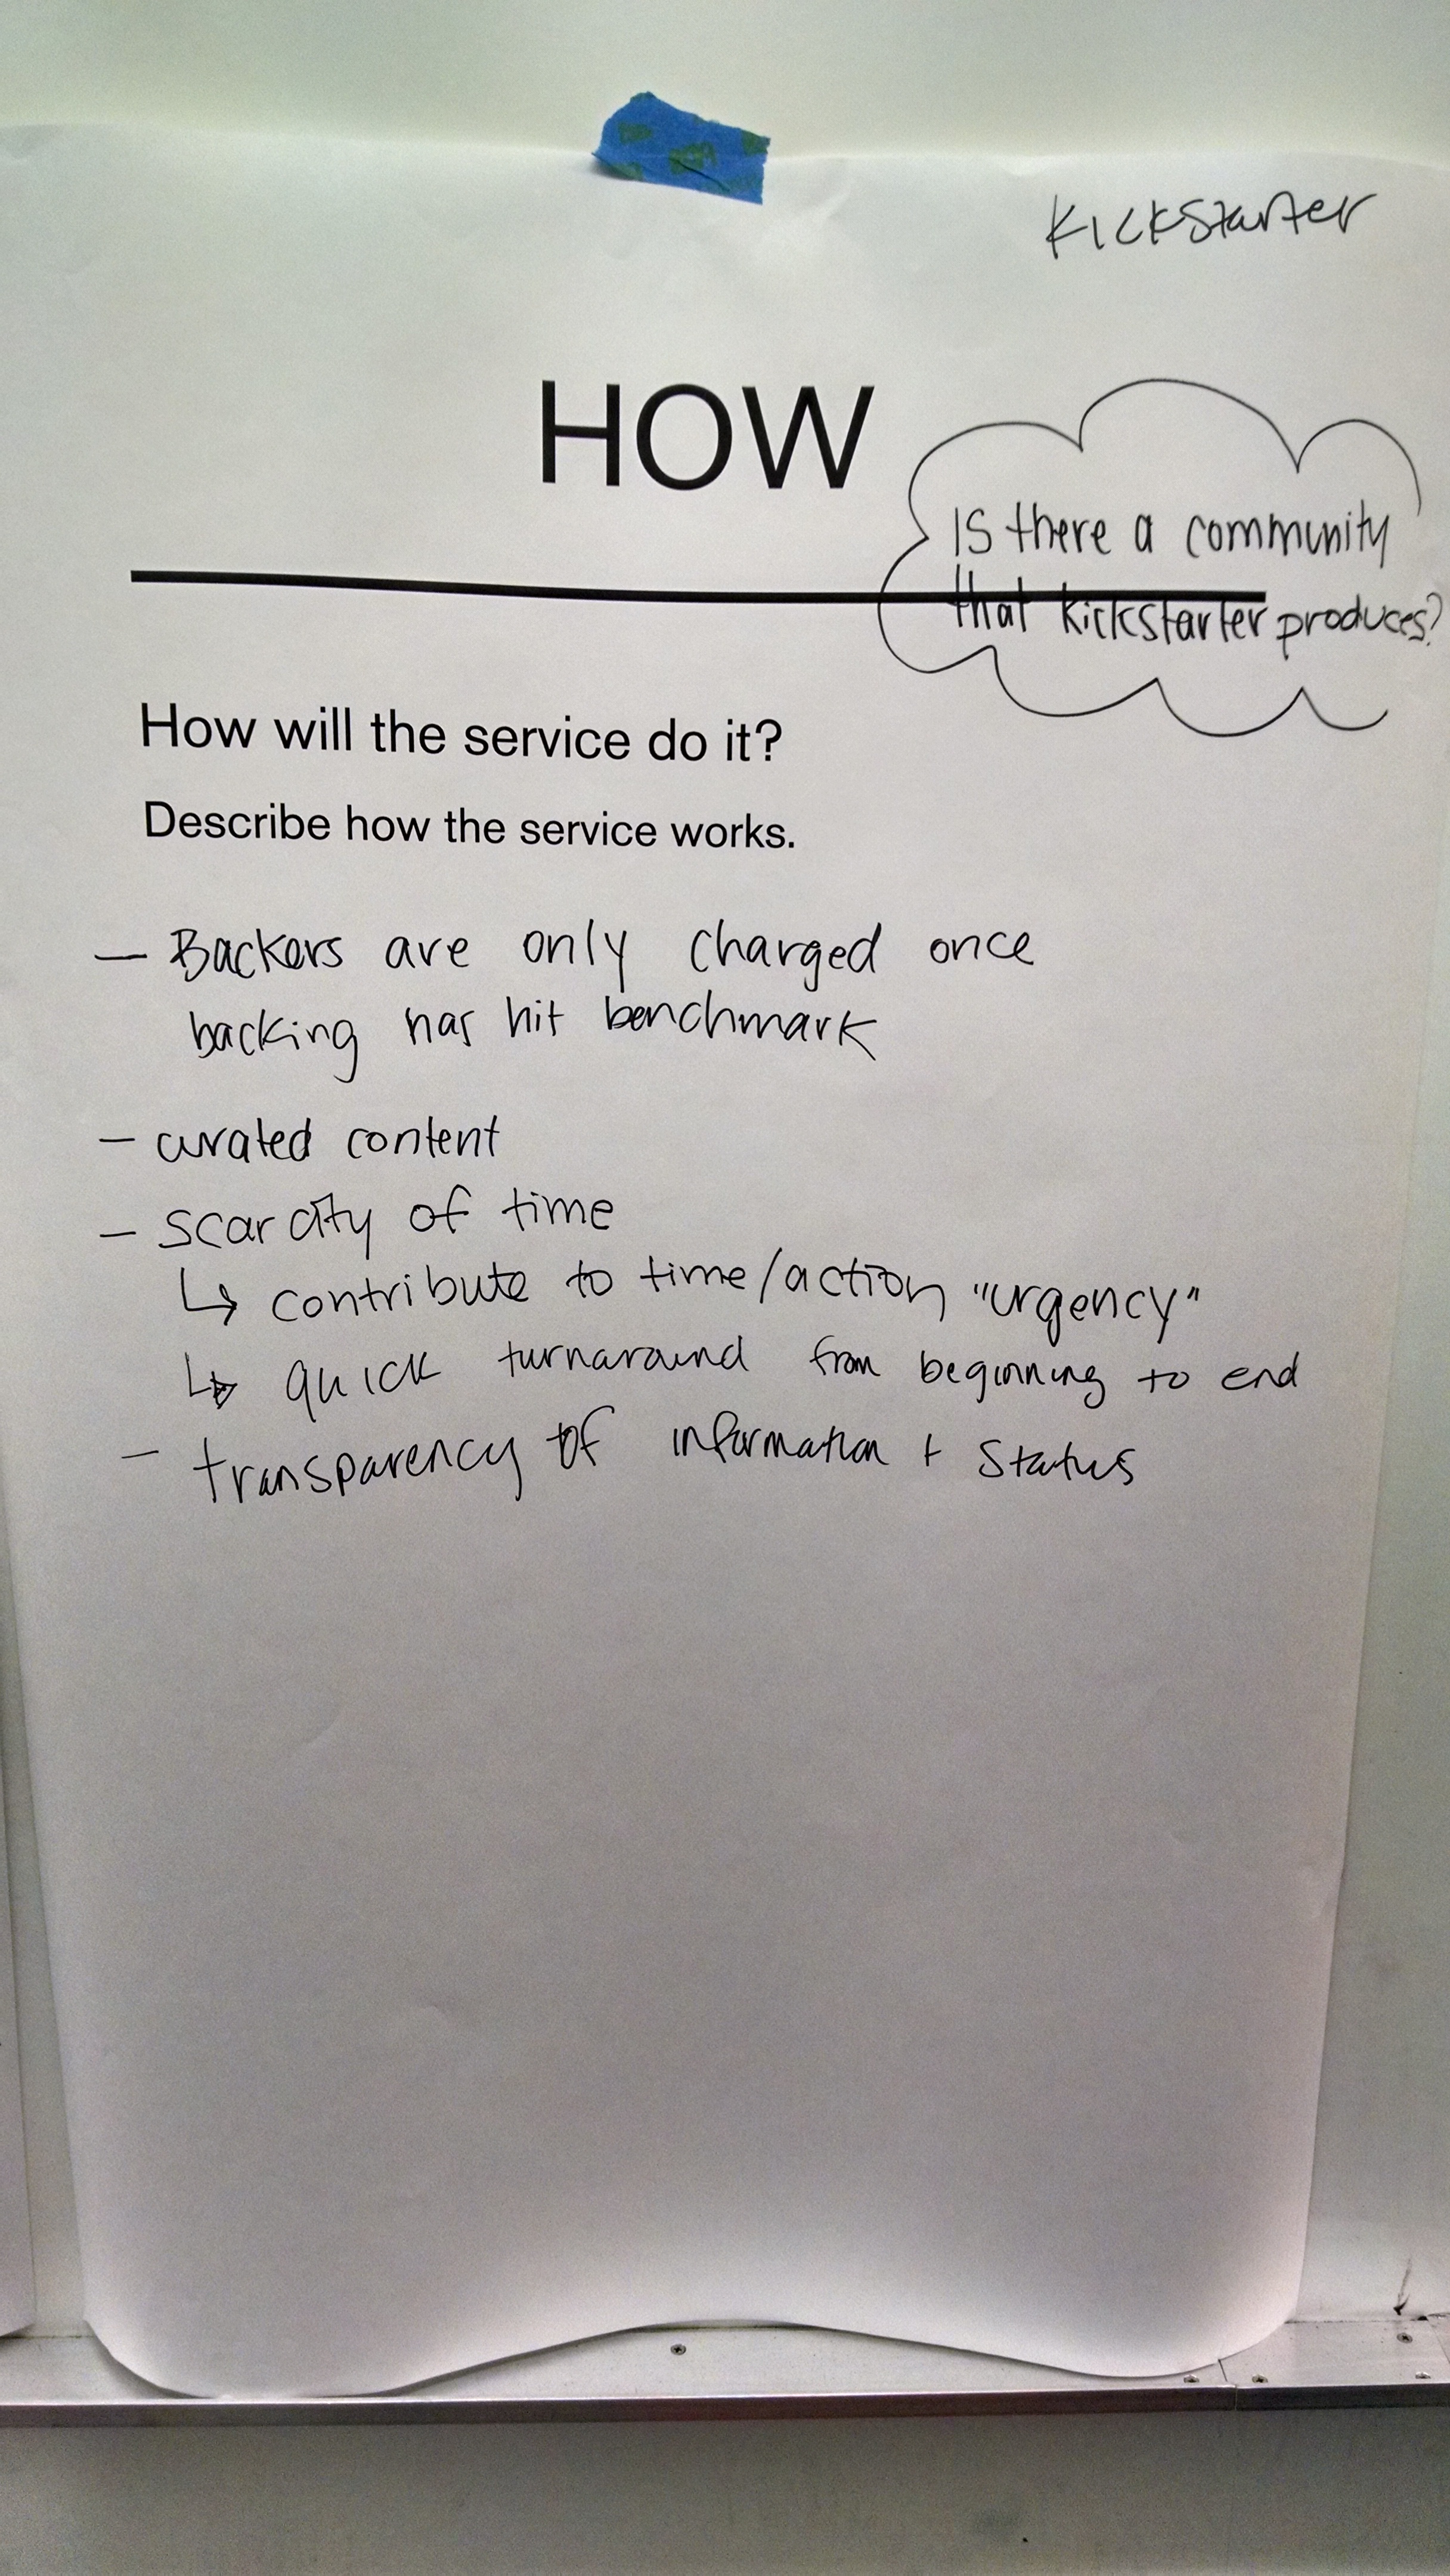 Kickstarter
HOW
Is there a community
that kickstarter produces?
How will the service do it?
Describe how the service works.
— Backers are only charged once
backing has hit benchmark
- curated content
- scarcity of time
↳ contribute to time/action "urgency"
↳ quick turnaround from beginning to end
- transparency of information + status